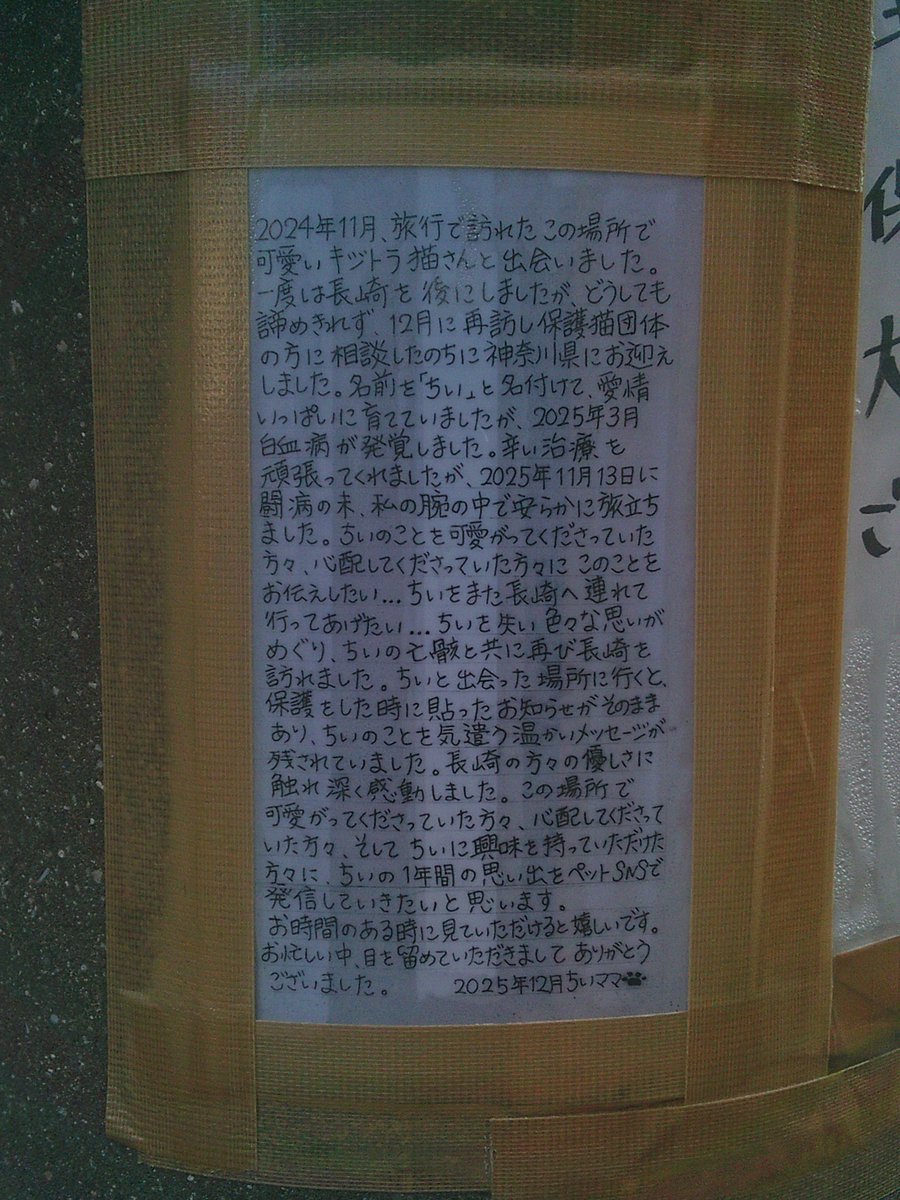 2024年11月、旅行で訪れたこの場所で
可愛いキジトラ猫さんと出会いました。
一度は長崎を後にしましたが、どうしても
諦めきれず、12月に再訪し保護猫団体
の方に相談したのちに神奈川県にお迎え
しました。名前を「ちい」と名付けて、愛情
いっぱいに育てていましたが、2025年3月
白血病が発覚しました。辛い治療を
頑張ってくれましたが、2025年11月13日に
闘病の末、私の腕の中で安らかに旅立ち
ました。ちいのことを可愛がってくださっていた
方々、心配してくださっていた方々にこのことを
お伝えしたい…ちいをまた長崎へ連れて
行ってあげたい…ちいを失い色々な思いが
めぐり、ちいの亡骸と共に再び長崎を
訪れました。ちいと出会った場所に行くと、
保護をした時に貼ったお知らせがそのまま
あり、ちいのことを気遣う温かいメッセージが
残されていました。長崎の方々の優しさに
触れ深く感動しました。この場所で
可愛がってくださっていた方々、心配してくださって
いた方々、そしてちいに興味を持っていただけた
方々に、ちいの1年間の思い出をペットSNSで
発信していきたいと思います。
お時間のある時に見ていただけると嬉しいです。
お忙しい中、目を留めていただきましてありがとう
ございました。 2025年12月ちいママ
保